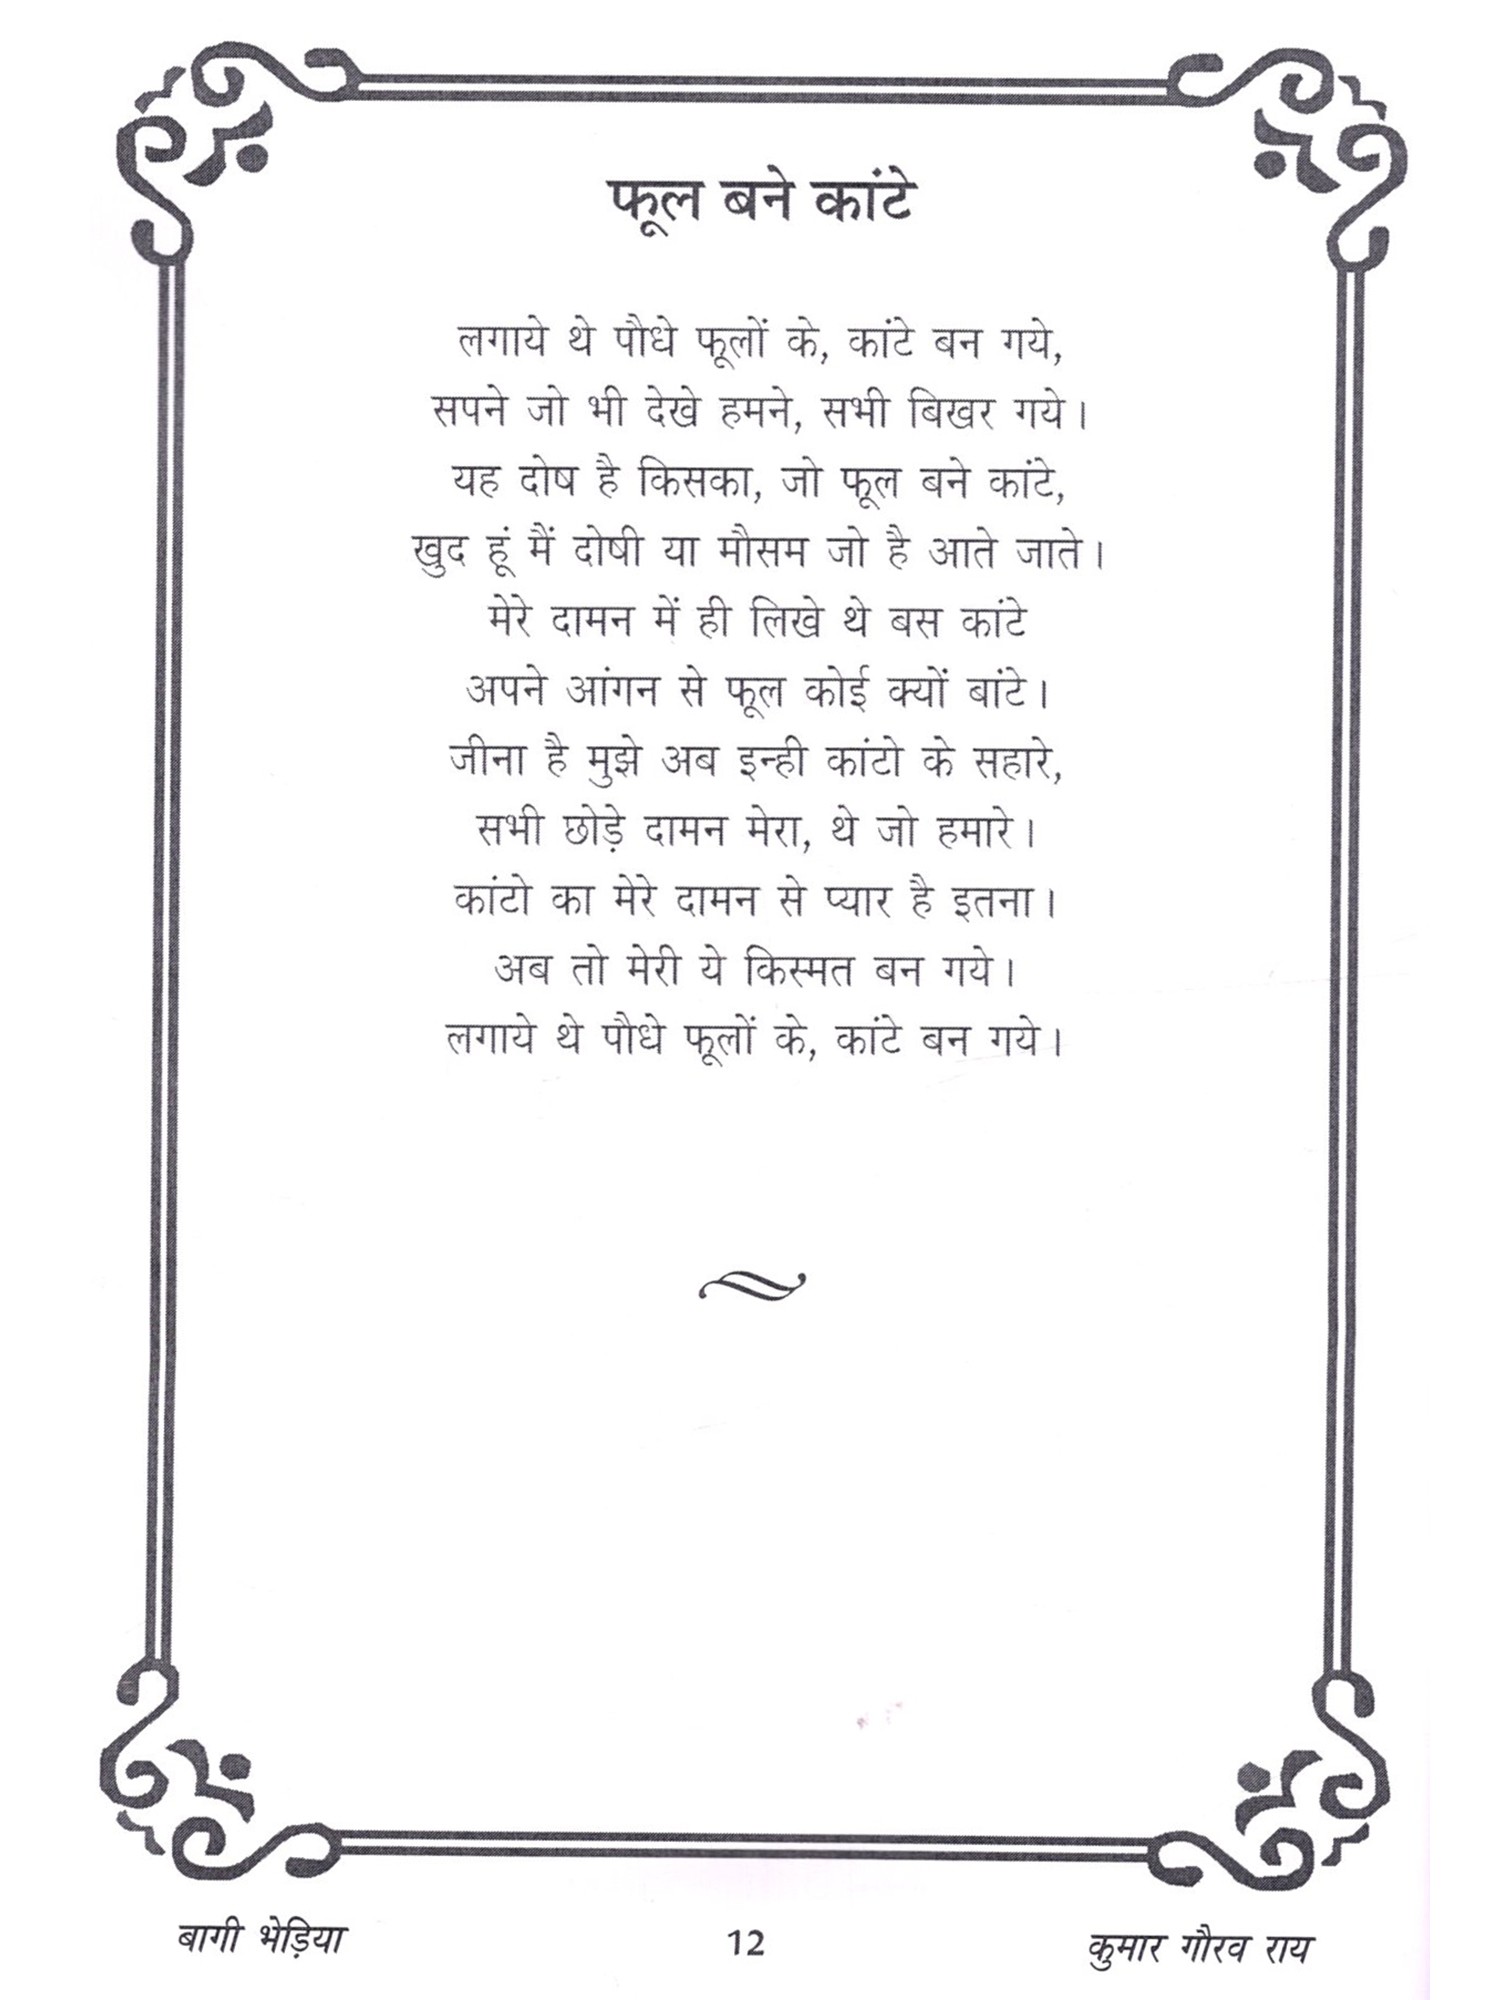 फूल बने कांटे
लगाये थे पौधे फूलों के, कांटे बन गये,
सपने जो भी देखे हमने, सभी बिखर गये।
यह दोष है किसका, जो फूल बने कांटे,
खुद हूं मैं दोषी या मौसम जो है आते जाते।
मेरे दामन में ही लिखे थे बस कांटे
अपने आंगन से फूल कोई क्यों बांटे।
जीना है मुझे अब इन्ही कांटो के सहारे,
सभी छोड़े दामन मेरा, थे जो हमारे।
कांटो का मेरे दामन से प्यार है इतना।
अब तो मेरी ये किस्मत बन गये।
लगाये थे पौधे फूलों के, कांटे बन गये।
बागी भेड़िया 12 कुमार गौरव राय